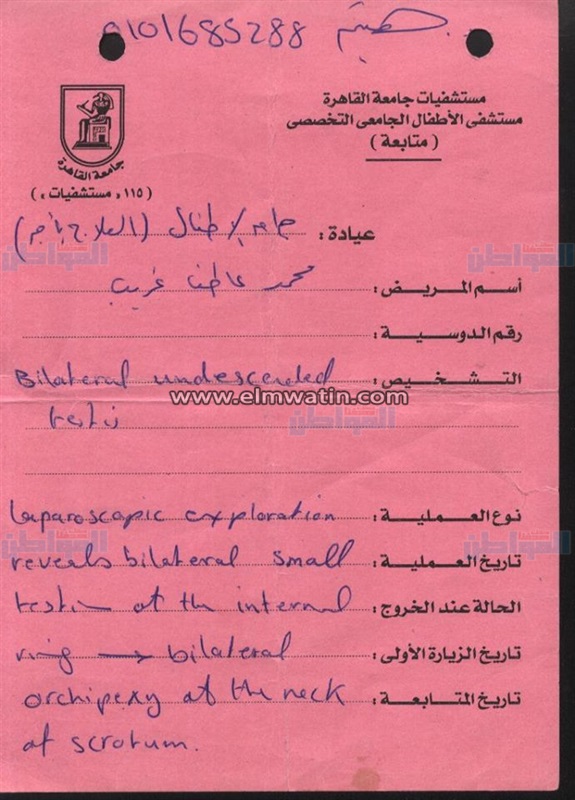 0101685288 هيثم
مستشفيات جامعة القاهرة
مستشفى الأطفال الجامعى التخصصى
( متابعة )
جامعة القاهرة
( ١١٥ » مستشفيات » )
عيادة :
اسم المريض : محمد عاطف غريب
رقم الدوسية :
التشخيص : Bilateral undescended
testis
www.elmwatin.com
المواطن
نوع العملية : laparoscopic exploration
تاريخ العملية : reveals bilateral small
الحالة عند الخروج : testis at the internal
تاريخ الزيارة الأولى : ring → bilateral
تاريخ المتابعة : orchipexy at the neck
of scrotum.